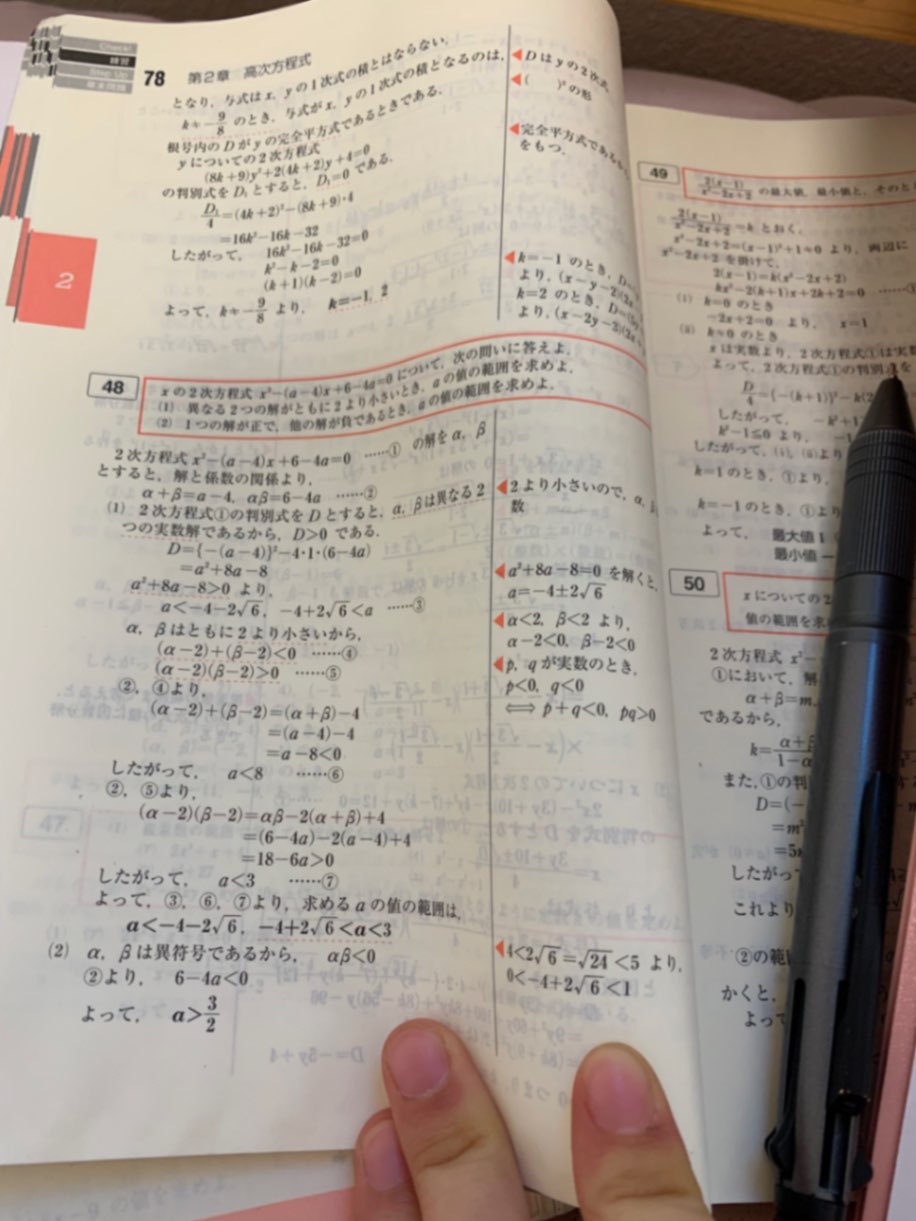 Check!
練習
Step Up
章末問題
78 第2章 高次方程式
となり，与式はx，yの1次式の積とはならない．
k≠-9/8 のとき，与式がx，yの1次式の積となるのは，
根号内のDがyの完全平方式であるときである．
yについての2次方程式
(8k+9)y²+2(4k+2)y+4=0
の判別式をD₁とすると，D₁=0 である．
D₁/4=(4k+2)²-(8k+9)・4
=16k²-16k-32
したがって， 16k²-16k-32=0
k²-k-2=0
(k+1)(k-2)=0
よって，k≠-9/8 より， k=-1，2
◀Dはyの2次式
◀( )²の形
◀完全平方式である
をもつ．
◀k=-1 のとき，D=
より，(x-y-2)(2x
k=2 のとき，
より，(x-2y-3)(2x
2
48
xの2次方程式 x²-(a-4)x+6-4a=0 について，次の問いに答えよ．
(1) 異なる2つの解がともに2より小さいとき，aの値の範囲を求めよ．
(2) 1つの解が正で，他の解が負であるとき，aの値の範囲を求めよ．
2次方程式 x²-(a-4)x+6-4a=0 ……① の解をα，β
とすると，解と係数の関係より，
α+β=a-4，αβ=6-4a ……②
(1) 2次方程式①の判別式をDとすると，α，βは異なる2
つの実数解であるから，D>0 である．
D={-(a-4)}²-4・1・(6-4a)
=a²+8a-8
a²+8a-8>0 より，
a<-4-2√6，-4+2√6<a ……③
α，βはともに2より小さいから，
(α-2)+(β-2)<0 ……④
(α-2)(β-2)>0 ……⑤
②，④より，
(α-2)+(β-2)=(α+β)-4
=(a-4)-4
=a-8<0
したがって， a<8 ……⑥
②，⑤より，
(α-2)(β-2)=αβ-2(α+β)+4
=(6-4a)-2(a-4)+4
=18-6a>0
したがって， a<3 ……⑦
よって，③，⑥，⑦より，求めるaの値の範囲は，
a<-4-2√6，-4+2√6<a<3
(2) α，βは異符号であるから， αβ<0
②より， 6-4a<0
よって， a>3/2
◀2より小さいので，α，β
数
◀a²+8a-8=0 を解くと，
a=-4±2√6
◀α<2，β<2 より，
α-2<0，β-2<0
◀p，qが実数のとき，
p<0，q<0
⟺ p+q<0，pq>0
◀4<2√6=√24<5 より，
0<-4+2√6<1
49
2(x-1)/(x²-2x+2) の最大値，最小値と，そのと
2(x-1)/(x²-2x+2)=k とおく．
x²-2x+2=(x-1)²+1≠0 より，両辺に
x²-2x+2 を掛けて，
2(x-1)=k(x²-2x+2)
kx²-2(k+1)x+2k+2=0 ……①
(i) k=0 のとき
-2x+2=0 より， x=1
(ii) k≠0 のとき
xは実数より，2次方程式①は実数
よって，2次方程式①の判別式を
D/4={-(k+1)}²-k(2
したがって， -k²+1
k²-1≦0 より， -1
したがって，(i)，(ii)より
k=1 のとき，①より
k=-1 のとき，①より
よって， 最大値1
最小値-
50
xについての2
値の範囲を求め
2次方程式 x²-
①において，解
α+β=m
であるから，
k=
また，①の判
D=(-
=m²
=5
したがって
これより
②の範
かくと，
よって